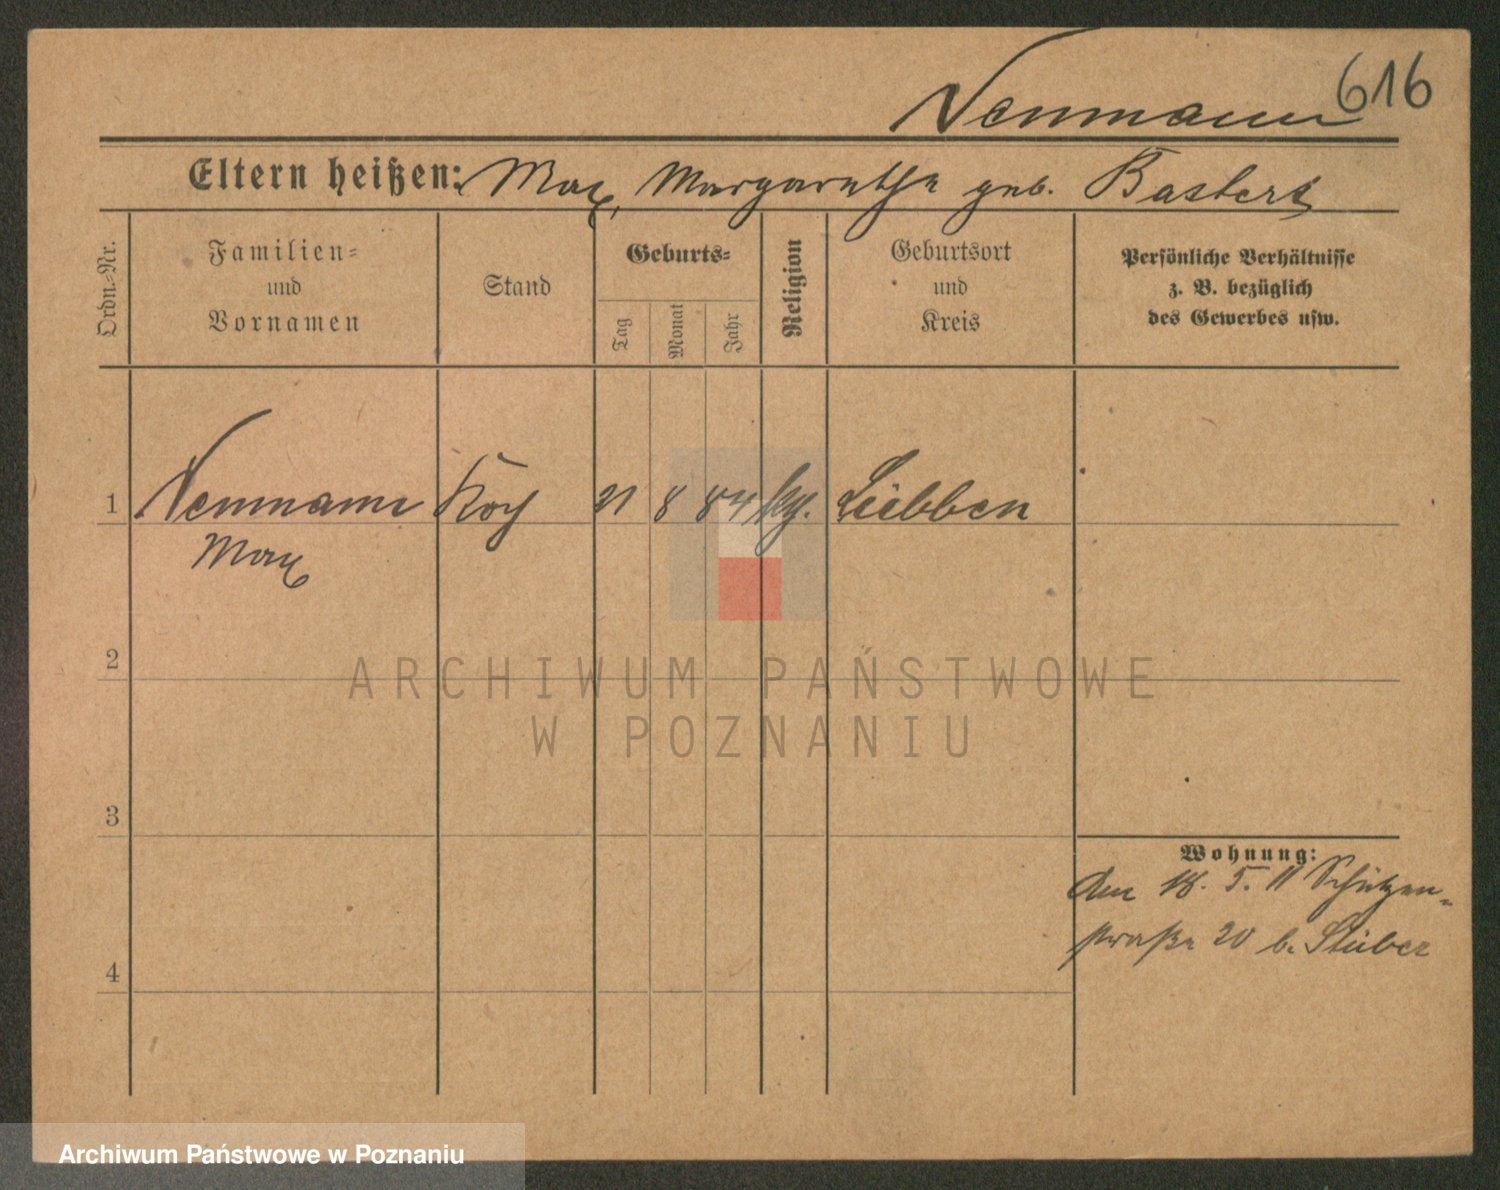 616
Neumann
Eltern heißen: Max, Margarethe geb. Bastert
Ordn.-Nr.
Familien- und Vornamen
Stand
Geburts-
Tag
Monat
Jahr
Religion
Geburtsort und Kreis
Persönliche Verhältnisse
z. B. bezüglich
des Gewerbes usw.
1 Neumann Koch 21 8 84 Lübben
Max
2
ARCHIWUM PAŃSTWOWE
W POZNANIU
3
Wohnung:
Am 18. 5. 11 Schützen-
straße 20 b. Stüber
4
Archiwum Państwowe w Poznaniu